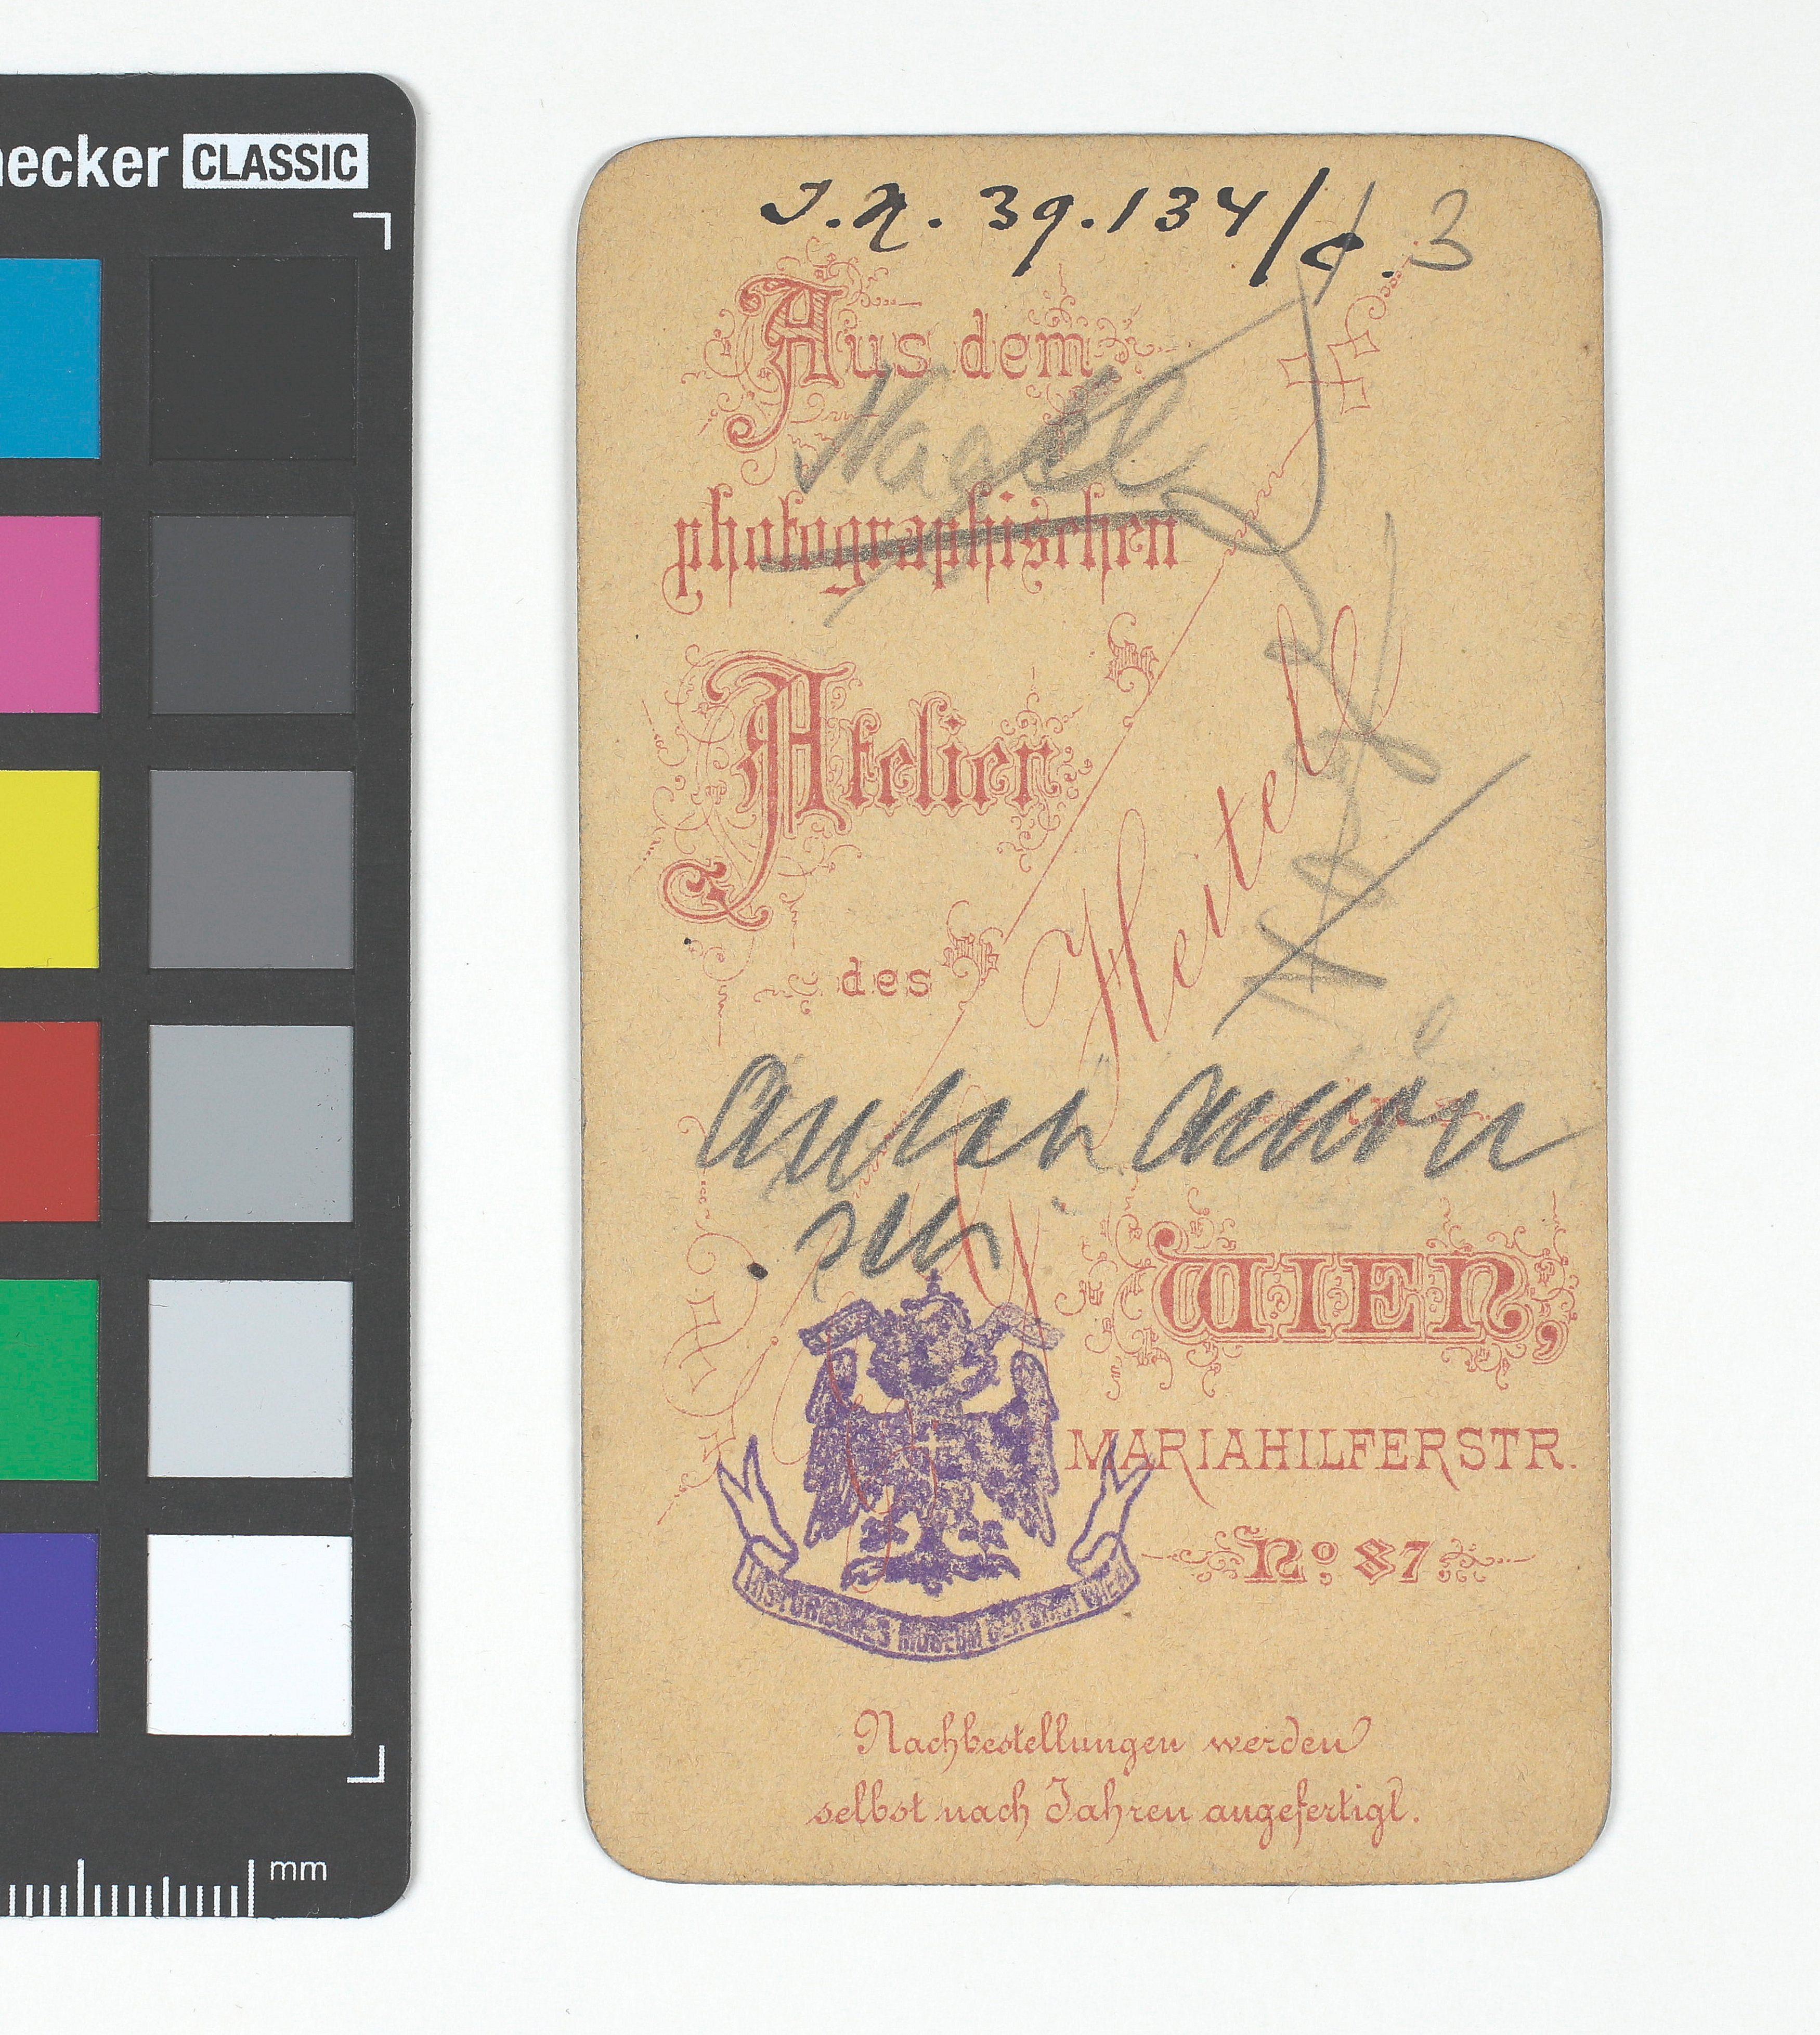 necker CLASSIC
J.N. 39.134/c. 3
Aus dem
photographischen
Atelier
des
G. Heitel
Anton Amon
sen
WIEN,
MARIAHILFERSTR.
No. 87.
HISTORISCHES MUSEUM DER STADT WIEN
Nachbestellungen werden
selbst nach Jahren angefertigt.
mm